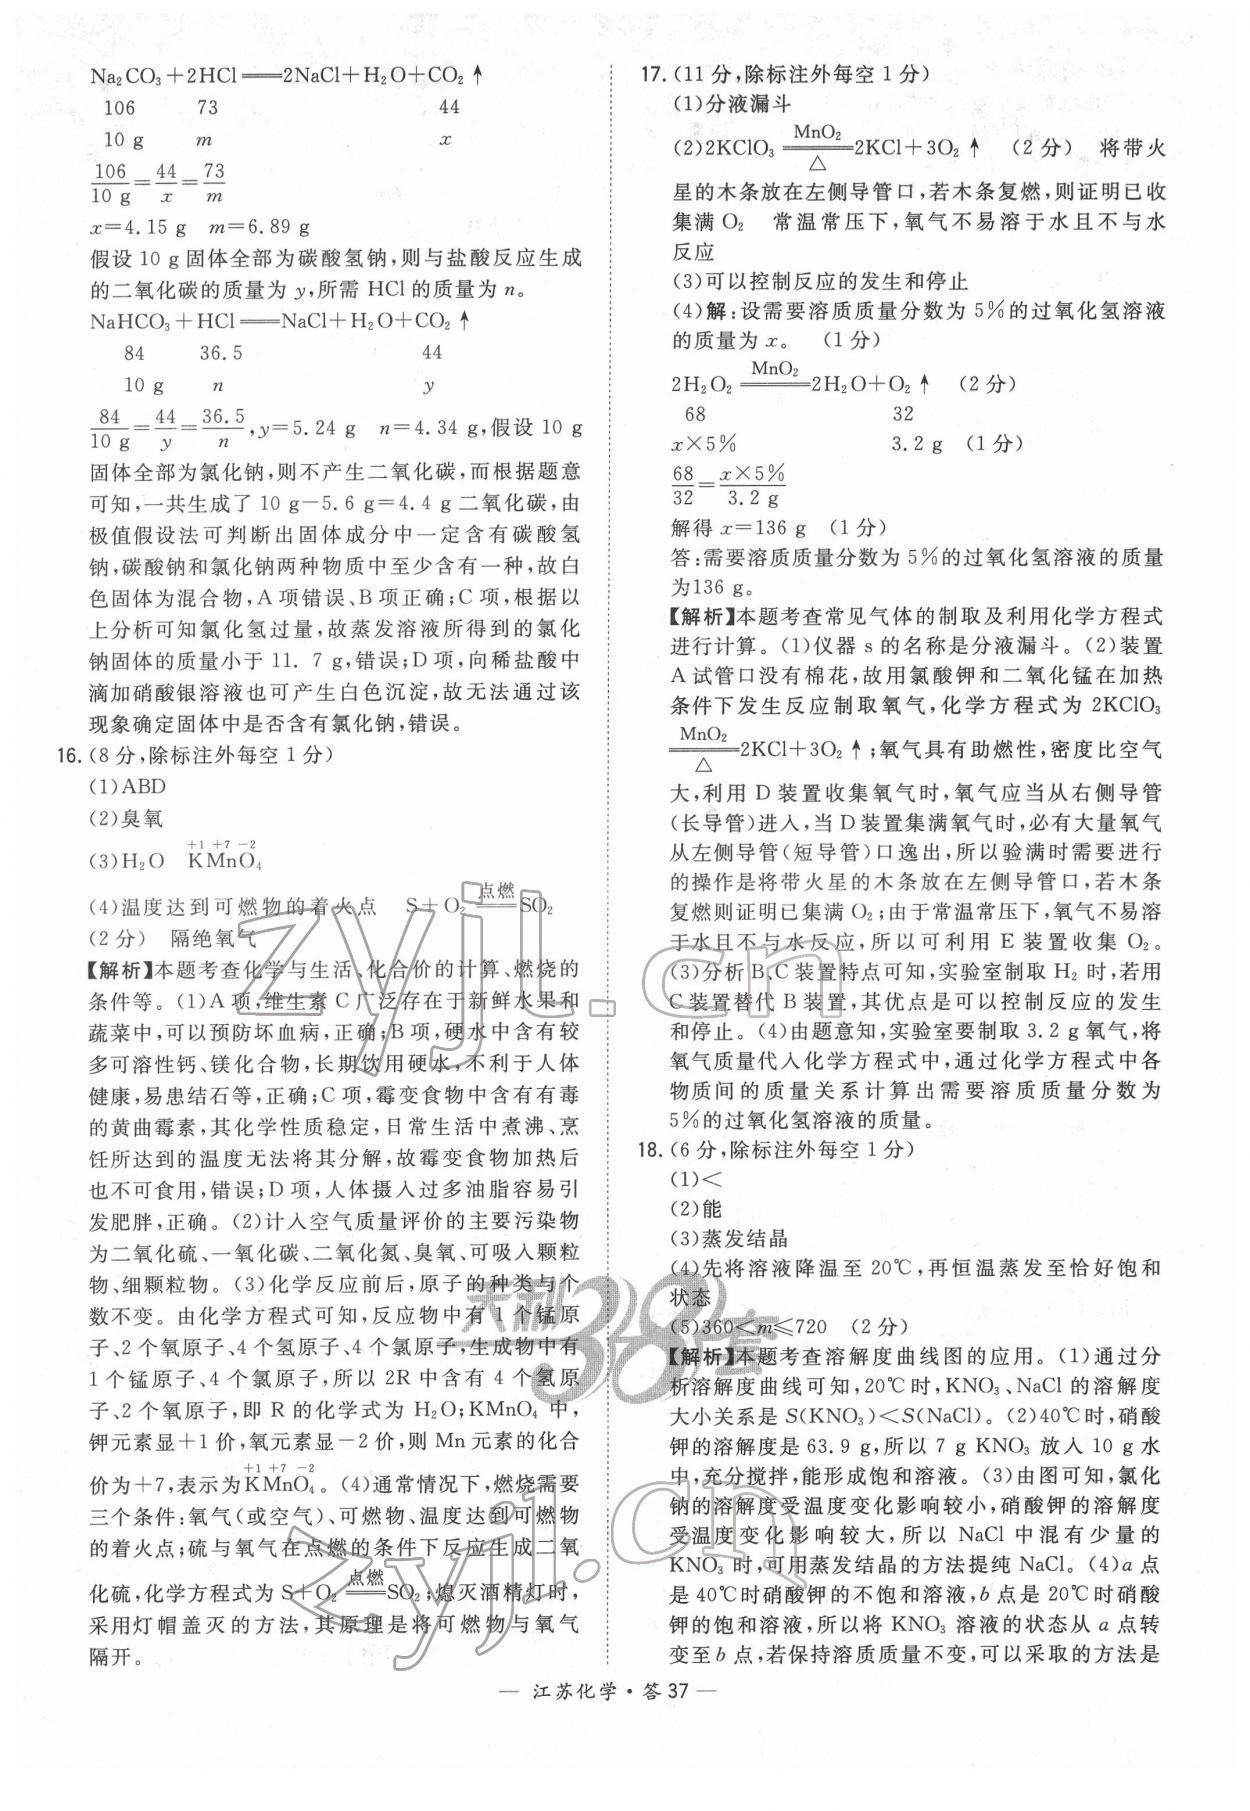 Na₂CO₃+2HCl══2NaCl+H₂O+CO₂↑
106 73 44
10 g m x
106/10 g=44/x=73/m
x=4.15 g m=6.89 g
假设10 g固体全部为碳酸氢钠,则与盐酸反应生成
的二氧化碳的质量为y,所需HCl的质量为n。
NaHCO₃+HCl══NaCl+H₂O+CO₂↑
84 36.5 44
10 g n y
84/10 g=44/y=36.5/n,y=5.24 g n=4.34 g,假设10 g
固体全部为氯化钠,则不产生二氧化碳,而根据题意
可知,一共生成了10 g-5.6 g=4.4 g二氧化碳,由
极值假设法可判断出固体成分中一定含有碳酸氢
钠,碳酸钠和氯化钠两种物质中至少含有一种,故白
色固体为混合物,A项错误、B项正确;C项,根据以
上分析可知氯化氢过量,故蒸发溶液所得到的氯化
钠固体的质量小于11.7 g,错误;D项,向稀盐酸中
滴加硝酸银溶液也可产生白色沉淀,故无法通过该
现象确定固体中是否含有氯化钠,错误。
16.(8分,除标注外每空1分)
(1)ABD
(2)臭氧
(3)H₂O K⁺¹Mn⁺⁷O₄⁻²
(4)温度达到可燃物的着火点 S+O₂ 点燃══ SO₂
(2分) 隔绝氧气
【解析】本题考查化学与生活、化合价的计算、燃烧的
条件等。(1)A项,维生素C广泛存在于新鲜水果和
蔬菜中,可以预防坏血病,正确;B项,硬水中含有较
多可溶性钙、镁化合物,长期饮用硬水,不利于人体
健康,易患结石等,正确;C项,霉变食物中含有有毒
的黄曲霉素,其化学性质稳定,日常生活中煮沸、烹
饪所达到的温度无法将其分解,故霉变食物加热后
也不可食用,错误;D项,人体摄入过多油脂容易引
发肥胖,正确。(2)计入空气质量评价的主要污染物
为二氧化硫、一氧化碳、二氧化氮、臭氧、可吸入颗粒
物、细颗粒物。(3)化学反应前后,原子的种类与个
数不变。由化学方程式可知,反应物中有1个锰原
子、2个氧原子、4个氢原子、4个氯原子,生成物中有
1个锰原子、4个氯原子,所以2R中含有4个氢原
子、2个氧原子,即R的化学式为H₂O;KMnO₄中,
钾元素显+1价,氧元素显-2价,则Mn元素的化合
价为+7,表示为K⁺¹Mn⁺⁷O₄⁻²。(4)通常情况下,燃烧需要
三个条件:氧气(或空气)、可燃物、温度达到可燃物
的着火点;硫与氧气在点燃的条件下反应生成二氧
化硫,化学方程式为S+O₂ 点燃══ SO₂;熄灭酒精灯时,
采用灯帽盖灭的方法,其原理是将可燃物与氧气
隔开。
17.(11分,除标注外每空1分)
(1)分液漏斗
(2)2KClO₃ MnO₂══△ 2KCl+3O₂↑ (2分) 将带火
星的木条放在左侧导管口,若木条复燃,则证明已收
集满O₂ 常温常压下,氧气不易溶于水且不与水
反应
(3)可以控制反应的发生和停止
(4)解:设需要溶质质量分数为5%的过氧化氢溶液
的质量为x。 (1分)
2H₂O₂ MnO₂══ 2H₂O+O₂↑ (2分)
68 32
x×5% 3.2 g (1分)
68/32=x×5%/3.2 g
解得x=136 g (1分)
答:需要溶质质量分数为5%的过氧化氢溶液的质量
为136 g。
【解析】本题考查常见气体的制取及利用化学方程式
进行计算。(1)仪器s的名称是分液漏斗。(2)装置
A试管口没有棉花,故用氯酸钾和二氧化锰在加热
条件下发生反应制取氧气,化学方程式为2KClO₃
MnO₂══△ 2KCl+3O₂↑;氧气具有助燃性,密度比空气
大,利用D装置收集氧气时,氧气应当从右侧导管
(长导管)进入,当D装置集满氧气时,必有大量氧气
从左侧导管(短导管)口逸出,所以验满时需要进行
的操作是将带火星的木条放在左侧导管口,若木条
复燃则证明已集满O₂;由于常温常压下,氧气不易溶
于水且不与水反应,所以可利用E装置收集O₂。
(3)分析B、C装置特点可知,实验室制取H₂时,若用
C装置替代B装置,其优点是可以控制反应的发生
和停止。(4)由题意知,实验室要制取3.2 g氧气,将
氧气质量代入化学方程式中,通过化学方程式中各
物质间的质量关系计算出需要溶质质量分数为
5%的过氧化氢溶液的质量。
18.(6分,除标注外每空1分)
(1)<
(2)能
(3)蒸发结晶
(4)先将溶液降温至20℃,再恒温蒸发至恰好饱和
状态
(5)360<m≤720 (2分)
【解析】本题考查溶解度曲线图的应用。(1)通过分
析溶解度曲线可知,20℃时,KNO₃、NaCl的溶解度
大小关系是S(KNO₃)<S(NaCl)。(2)40℃时,硝酸
钾的溶解度是63.9 g,所以7 g KNO₃放入10 g水
中,充分搅拌,能形成饱和溶液。(3)由图可知,氯化
钠的溶解度受温度变化影响较小,硝酸钾的溶解度
受温度变化影响较大,所以NaCl中混有少量的
KNO₃时,可用蒸发结晶的方法提纯NaCl。(4)a点
是40℃时硝酸钾的不饱和溶液,b点是20℃时硝酸
钾的饱和溶液,所以将KNO₃溶液的状态从a点转
变至b点,若保持溶质质量不变,可以采取的方法是
— 江苏化学·答37 —
zyjl.cn
天利38套
zyjl.cn